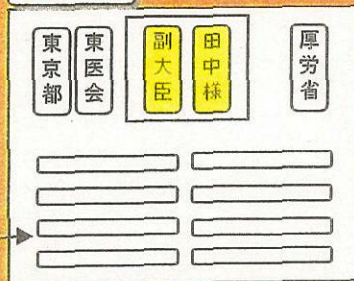 東京都
東医会
副大臣
田中様
厚労省